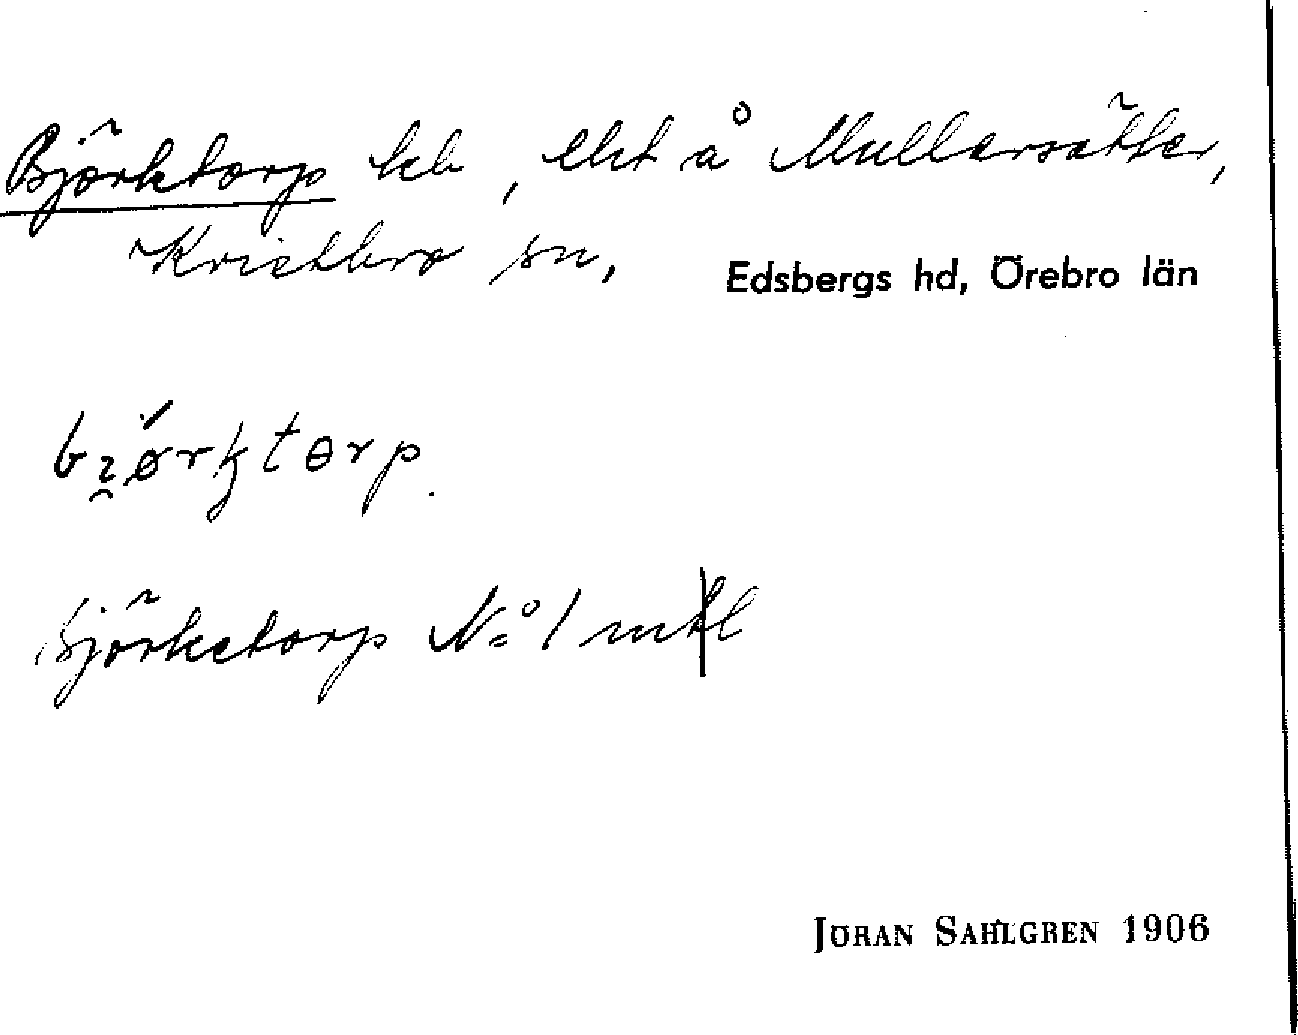 Björktorp hb, ekt å Mullersäter,
Kvistbro sn, Edsbergs hd, Örebro län
Björketorp No 1 mtl
JÖRAN SAHLGREN 1906